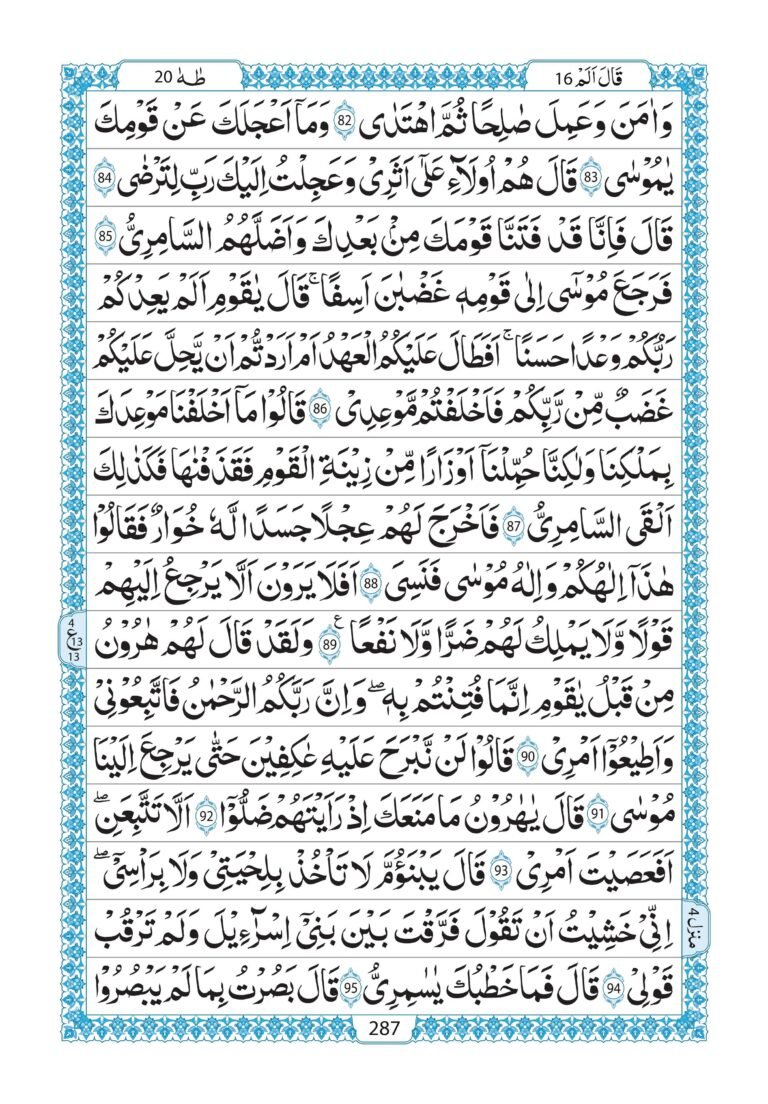 قَالَ اَلَمْ 16
طٰهٰ 20
وَاٰمَنَ وَعَمِلَ صٰلِحًا ثُمَّ اهْتَدٰى 82 وَمَاۤ اَعْجَلَكَ عَنْ قَوْمِكَ
يٰمُوْسٰى 83 قَالَ هُمْ اُولَآءِ عَلٰٓى اَثَرِىْ وَعَجِلْتُ اِلَيْكَ رَبِّ لِتَرْضٰى 84
قَالَ فَاِنَّا قَدْ فَتَنَّا قَوْمَكَ مِنْۢ بَعْدِكَ وَاَضَلَّهُمُ السَّامِرِىُّ 85
فَرَجَعَ مُوْسٰٓى اِلٰى قَوْمِهٖ غَضْبٰنَ اَسِفًا ۚ قَالَ يٰقَوْمِ اَلَمْ يَعِدْكُمْ
رَبُّكُمْ وَعْدًا حَسَنًا ۚ اَفَطَالَ عَلَيْكُمُ الْعَهْدُ اَمْ اَرَدْتُّمْ اَنْ يَّحِلَّ عَلَيْكُمْ
غَضَبٌ مِّنْ رَّبِّكُمْ فَاَخْلَفْتُمْ مَّوْعِدِىْ 86 قَالُوْا مَاۤ اَخْلَفْنَا مَوْعِدَكَ
بِمَلْكِنَا وَلٰكِنَّا حُمِّلْنَاۤ اَوْزَارًا مِّنْ زِيْنَةِ الْقَوْمِ فَقَذَفْنٰهَا فَكَذٰلِكَ
اَلْقَى السَّامِرِىُّ 87 فَاَخْرَجَ لَهُمْ عِجْلًا جَسَدًا لَّهٗ خُوَارٌ فَقَالُوْا
هٰذَاۤ اِلٰهُكُمْ وَاِلٰهُ مُوْسٰى فَنَسِىَ 88 اَفَلَا يَرَوْنَ اَلَّا يَرْجِعُ اِلَيْهِمْ
قَوْلًا وَّلَا يَمْلِكُ لَهُمْ ضَرًّا وَّلَا نَفْعًا 89 ع وَلَقَدْ قَالَ لَهُمْ هٰرُوْنُ
4 ع 13 13
مِنْ قَبْلُ يٰقَوْمِ اِنَّمَا فُتِنْتُمْ بِهٖ ۖ وَاِنَّ رَبَّكُمُ الرَّحْمٰنُ فَاتَّبِعُوْنِىْ
وَاَطِيْعُوْۤا اَمْرِىْ 90 قَالُوْا لَنْ نَّبْرَحَ عَلَيْهِ عٰكِفِيْنَ حَتّٰى يَرْجِعَ اِلَيْنَا
مُوْسٰى 91 قَالَ يٰهٰرُوْنُ مَا مَنَعَكَ اِذْ رَاَيْتَهُمْ ضَلُّوْۤا 92 اَلَّا تَتَّبِعَنِ ۖ
اَفَعَصَيْتَ اَمْرِىْ 93 قَالَ يَبْنَؤُمَّ لَا تَاْخُذْ بِلِحْيَتِىْ وَلَا بِرَاْسِىْ ۖ
اِنِّىْ خَشِيْتُ اَنْ تَقُوْلَ فَرَّقْتَ بَيْنَ بَنِىْۤ اِسْرَآءِيْلَ وَلَمْ تَرْقُبْ
منزل 4
قَوْلِىْ 94 قَالَ فَمَا خَطْبُكَ يٰسٰمِرِىُّ 95 قَالَ بَصُرْتُ بِمَا لَمْ يَبْصُرُوْا
287